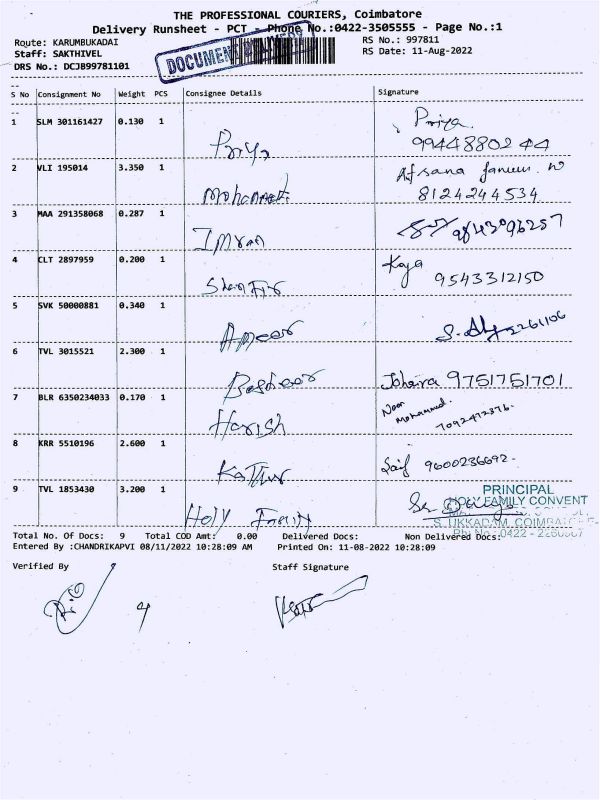 THE PROFESSIONAL COURIERS, Coimbatore
Delivery Runsheet - PCT - Phone No.:0422-3505555 - Page No.:1
Route: KARUMBUKADAI
RS No.: 997811
Staff: SAKTHIVEL
RS Date: 11-Aug-2022
DRS No.: DCJB99781101
DOCUMENT DELIVERY
S No Consignment No Weight PCS Consignee Details Signature
1 SLM 301161427 0.130 1 Priya Priya.
9944880244
2 VLI 195014 3.350 1 Mohammed Afsana
8124244534
3 MAA 291358068 0.287 1 Imran 9843096257
4 CLT 2897959 0.200 1 Kaja
9543312150
5 SVK 50000881 0.340 1 Ameer
6 TVL 3015521 2.300 1 Basheer 9751751701
7 BLR 6350234033 0.170 1 Harish Noor Mohammed.
7092472376.
8 KRR 5510196 2.600 1 Saif 9600236692.
9 TVL 1853430 3.200 1 Holy
PRINCIPAL
HOLY FAMILY CONVENT
UKKADAM, COIMBATORE
Total No. Of Docs: 9 Total COD Amt: 0.00 Delivered Docs: Non Delivered Docs:
Entered By :CHANDRIKAPVI 08/11/2022 10:28:09 AM Printed On: 11-08-2022 10:28:09
Verified By Staff Signature